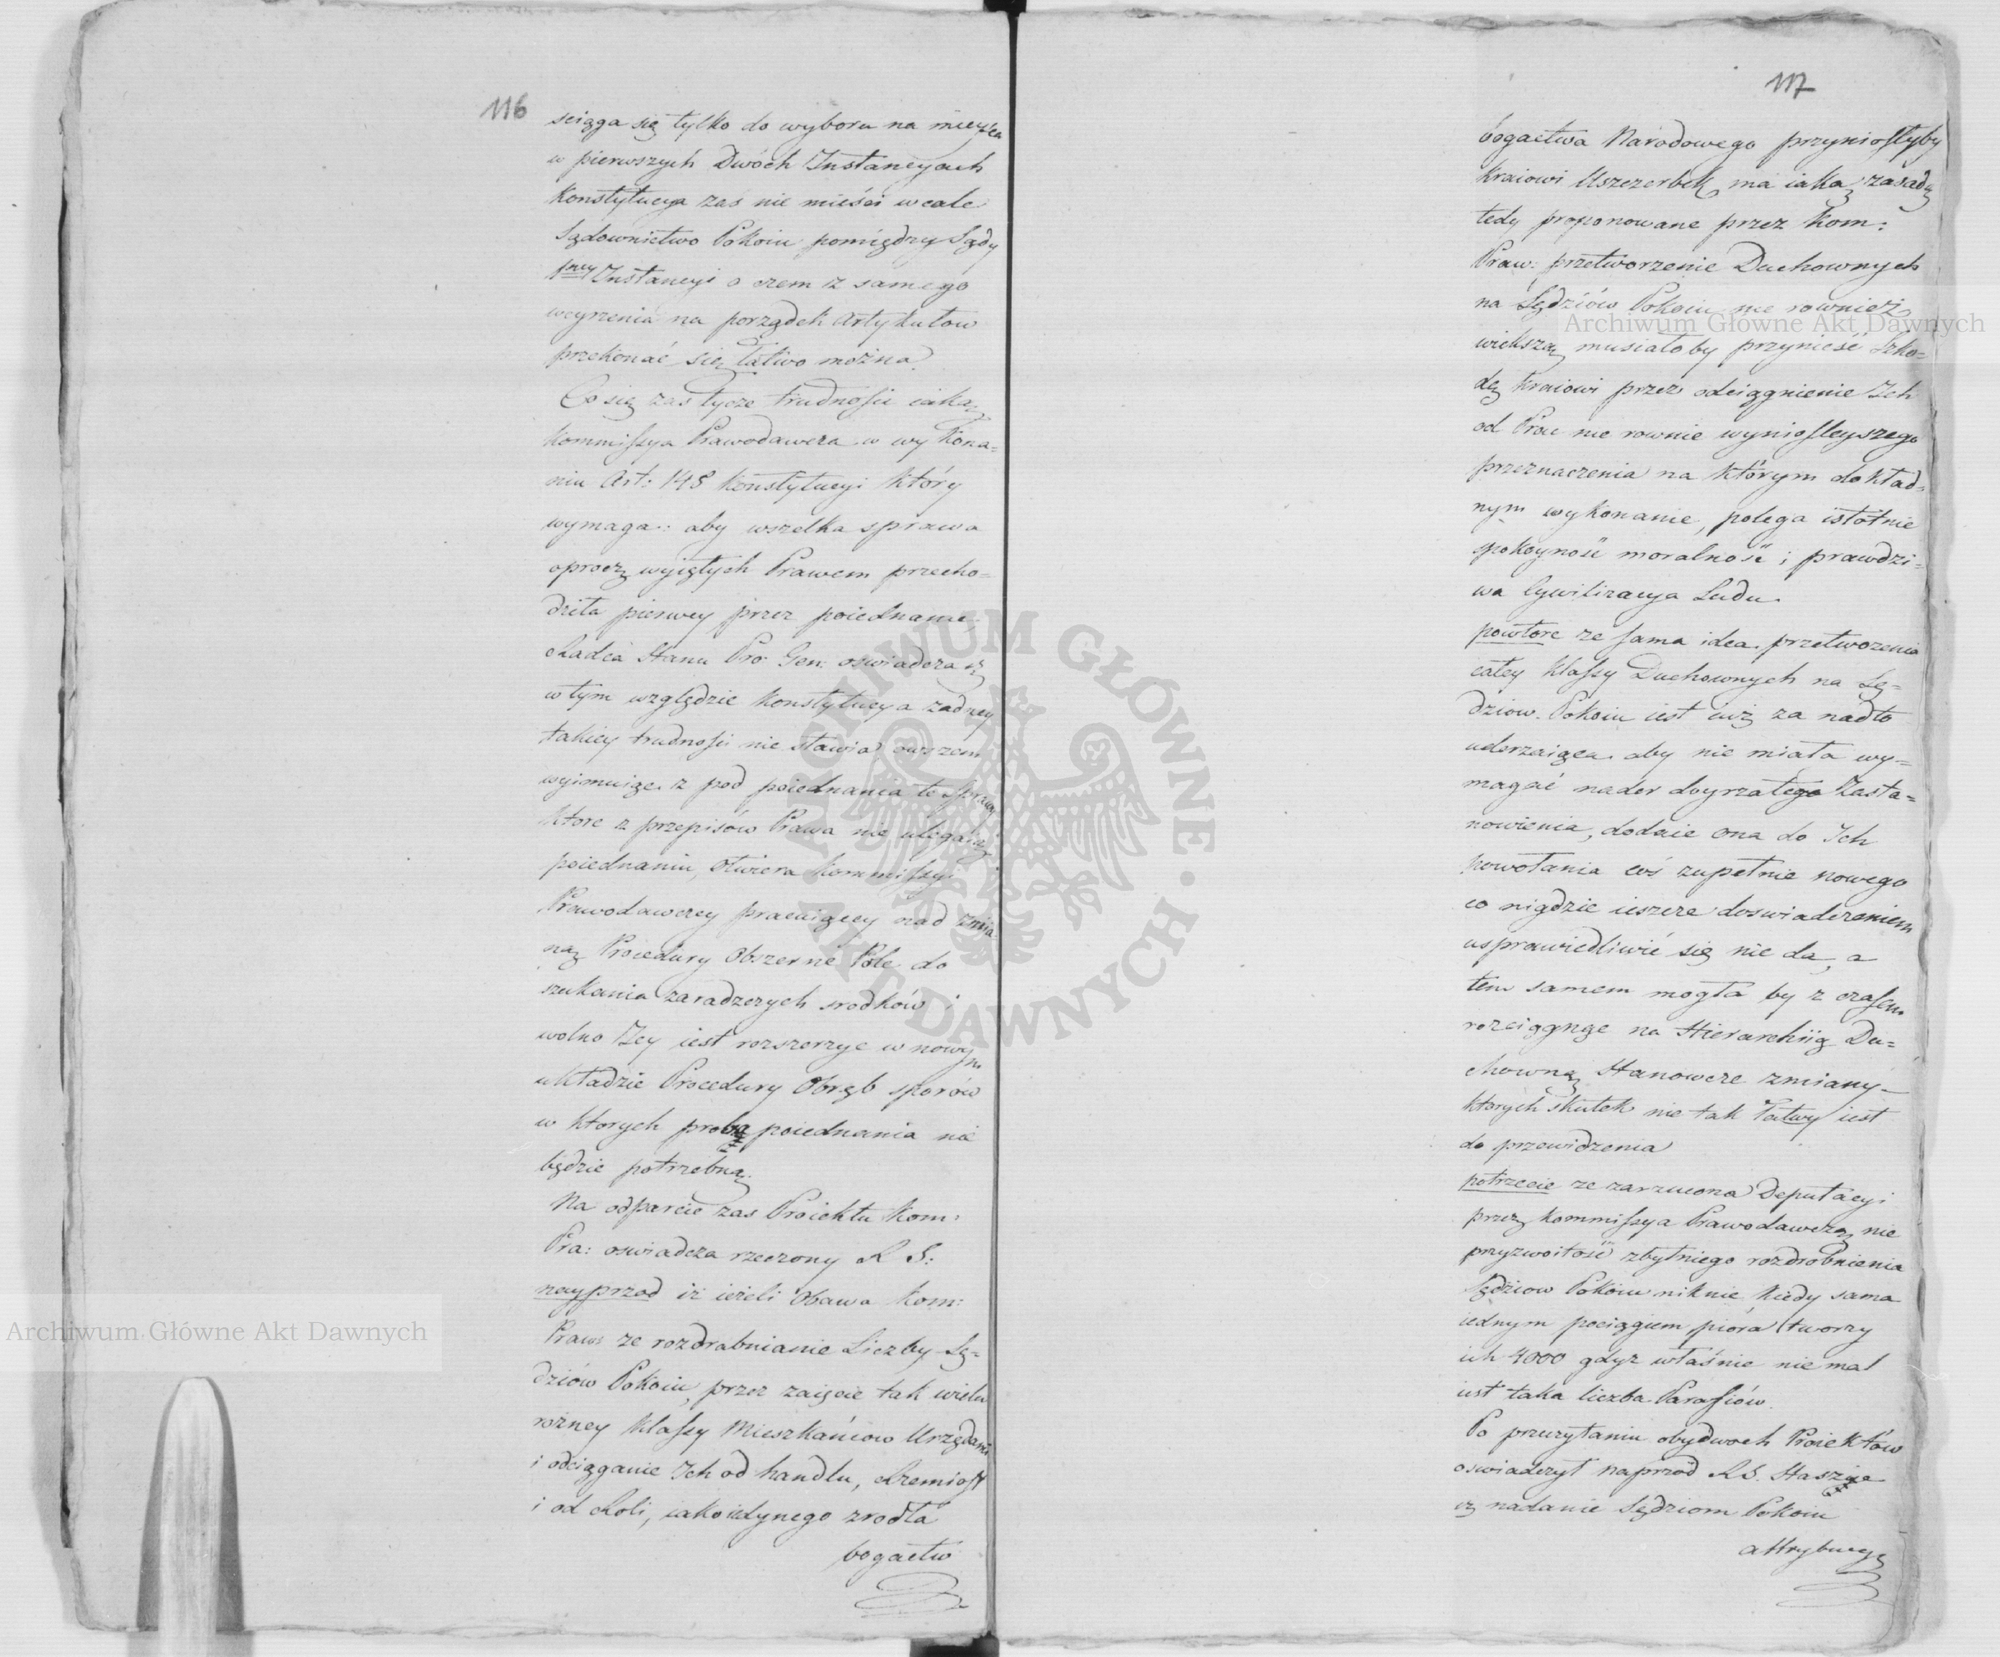 116
sciąga się tylko do wyboru na mieysca
w pierwszych Dwóch Instancyach
Konstytucya zas nie mieści wcale
Sądownictwo Pokoiu pomiędzy Sądy
Instancyi o czem z samego
weyrzenia na porządek Artykułow
przekonać się łatwo można.
Co się zas tycze trudności iaką
Kommissya Prawodawcza w wykona-
niu Art: 148 Konstytucyi który
wymaga: aby wszelka sprawa
oprocz wyiętych Prawem przecho-
dziła pierwey przez poiednanie;
Radca Stanu Pro: Gen: oswiadcza iż
w tym względzie Konstytucya zadney
takiey trudności nie stawia owszem
wyimuiąc z pod poiednania te sprawy
które z przepisów Prawa nie ulegaią
poiednaniu, otwiera Kommissyi
Prawodawczey pracuiącey nad zmia
ną Procedury Obszerne Pole do
szukania zaradczych srodków i
wolno Jey iest rozszerzyc w nowym
układzie Procedury Obręb sporów
w ktorych proba poiednania nie
będzie potrzebną.
Na odparcie zas Proiektu Kom:
Pra: oswiadcza rzeczony R S:
nayprzod iż ieżeli Obawa Kom:
Praw: ze rozdrabnianie Liczby Sę-
dziów Pokoiu, przez zaięcie tak wielu
rożney Klassy Mieszkańcow Urzędami
i odciąganie Ich od handlu, Rzemiosł
i od Roli, iako iedynego zrodła
bogactw
117
bogactwa Narodowego przyniosłyby
Kraiowi Uszczerbek, ma iaką zasadę
tedy proponowane przez Kom:
Praw: przetworzenie Duchownych
na Sędziów Pokoiu nie rownież
większą musiałoby przynieść Szko-
dę Kraiowi przez odciągnienie Ich
od Prac nie rownie wynioslejszego
przeznaczenia na którym dokład-
nym wykonanie, polega istotnie
spokoyność moralność i prawdzi-
wa Cywilizacya Ludu.
powtore ze sama idea przetworzenia
całey Klassy Duchownych na Sę-
dziow Pokoiu iest iuż za nadto
uderzaiąca aby nie miała wy-
magać nader doyrzałego Zasta-
nowienia, dodaie ona do Ich
powołania coś zupełnie nowego
co nigdzie ieszcze doswiadczeniem
usprawiedliwić się nie da, a
tem samem mogła by z czasem
rozciągnąc na Hierarchiią Du-
chowną Stanowcze zmiany
ktorych skutek nie tak łatwy iest
do przewidzenia
potrzecie ze zarzucona Deputacyi
przez Kommissya Prawodawczą nie
przyzwoitość zbytniego rozdrobnienia
Sędziow Pokoiu niknie, kiedy sama
iednym pociągiem pióra tworzy
ich 4000 gdyz właśnie nie mal
iest taka liczba Parafiów.
Po przeczytaniu obydwoch Proiektów
oswiadczył naprzód R S. Staszic
iz nadanie Sędziom Pokoiu
attrybucyi
Archiwum Główne Akt Dawnych
Archiwum Główne Akt Dawnych
ARCHIWUM GŁÓWNE · AKT DAWNYCH ·